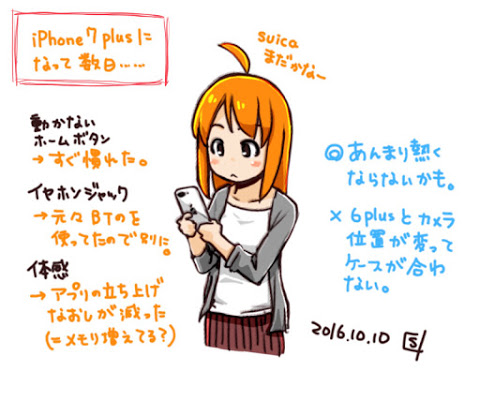 iPhone7 plusに
なって数日……
suica
まだかなー
動かない
ホームボタン
→すぐ慣れた。
イヤホンジャック
→元々BTのを
使ってたので別に。
体感
→アプリの立ち上げ
なおしが減った
(=メモリ増えてる?)
◎あんまり熱く
ならないかも。
×6plusとカメラ
位置が変って
ケースが合わ
ない。
2016.10.10 S